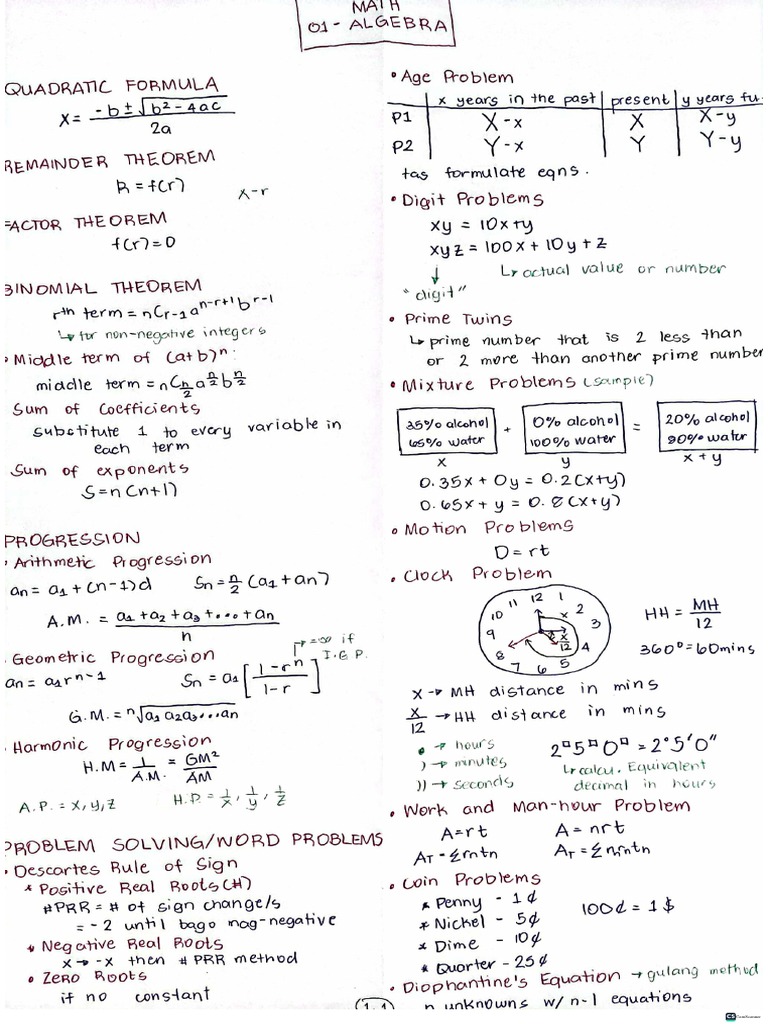 MATH
01 - ALGEBRA
QUADRATIC FORMULA
x = -b ± √b² - 4ac / 2a
REMAINDER THEOREM
R = f(r)
x-r
FACTOR THEOREM
f(r) = 0
BINOMIAL THEOREM
rth term = nCr-1 a^n-r+1 b^r-1
↳ for non-negative integers
• Middle term of (a+b)ⁿ:
middle term = nCn/2 a^n/2 b^n/2
Sum of Coefficients
substitute 1 to every variable in
each term
Sum of exponents
S = n(n+1)
PROGRESSION
• Arithmetic Progression
an = a1 + (n-1)d Sn = n/2 (a1 + an)
A.M. = a1 + a2 + a3 + ... + an / n
• Geometric Progression
→ = ∞ if
I.G.P.
an = a1 r^n-1 Sn = a1 [1 - rⁿ / 1 - r]
G.M. = ⁿ√a1 a2 a3 ... an
• Harmonic Progression
H.M = 1/A.M. = GM²/AM
A.P. = x, y, z H.P. = 1/x, 1/y, 1/z
PROBLEM SOLVING/WORD PROBLEMS
• Descartes Rule of Sign
* Positive Real Roots (#)
#PRR = # of sign change/s
= -2 until bago mag-negative
* Negative Real Roots
x → -x then # PRR method
• Zero Roots
if no constant
• Age Problem
x years in the past | present | y years fu
P1 X-x X X-y
P2 Y-x Y Y-y
tas formulate eqns.
• Digit Problems
xy = 10x+y
xyz = 100x + 10y + z
↳ actual value or number
"digit"
• Prime Twins
↳ prime number that is 2 less than
or 2 more than another prime number
• Mixture Problems (sample)
35% alcohol + 0% alcohol = 20% alcohol
65% water 100% water 90% water
x y x + y
0.35x + 0y = 0.2(x+y)
0.65x + y = 0.8(x+y)
• Motion Problems
D = rt
• Clock Problem
12 1 2 3 4 5 6 7 8 9 10 11
x
x/12
HH = MH/12
360° = 60mins
x → MH distance in mins
x/12 → HH distance in mins
° → hours
) → minutes
)) → seconds
2°5°0° = 2°5'0"
↳ calcu. Equivalent
decimal in hours
• Work and Man-hour Problem
A = rt A = nrt
AT = Σrntn AT = Σnrntn
• Coin Problems
* Penny - 1¢
* Nickel - 5¢
* Dime - 10¢
* Quarter - 25¢
100¢ = 1$
• Diophantine's Equation → gulang method
n unknowns w/ n-1 equations
1-1
CS CamScanner